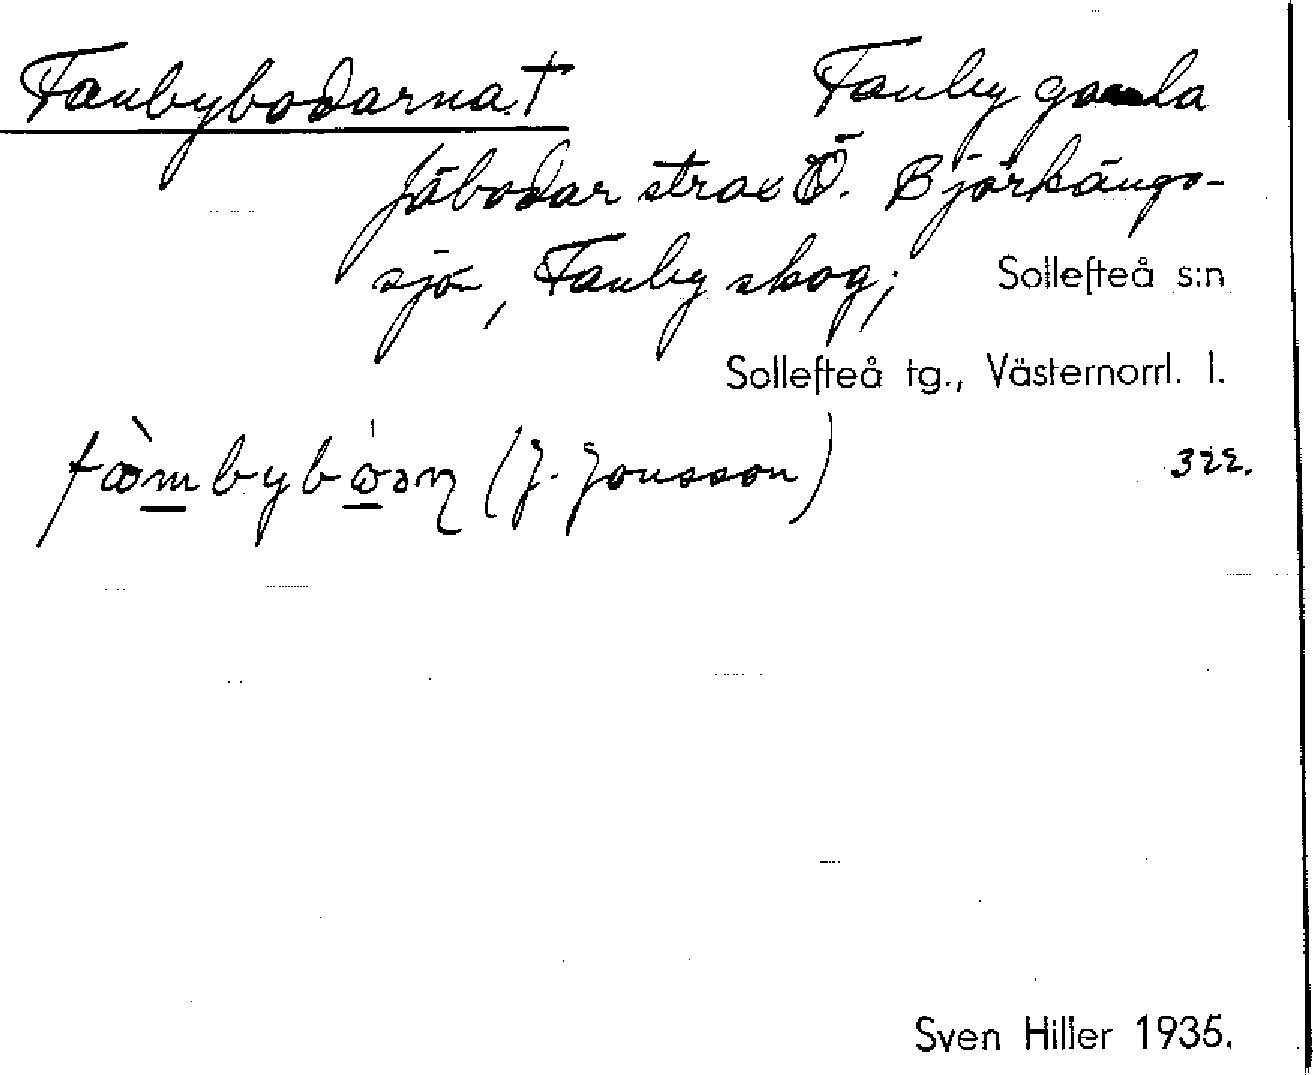 Fanbybodarna. † Fanby gamla
fäbodar strax Ö. Björkängs-
sjön, Fanby skog; Sollefteå s:n
Sollefteå tg., Västernorrl. l.
(J. Jonsson) 322.
Sven Hiller 1935.